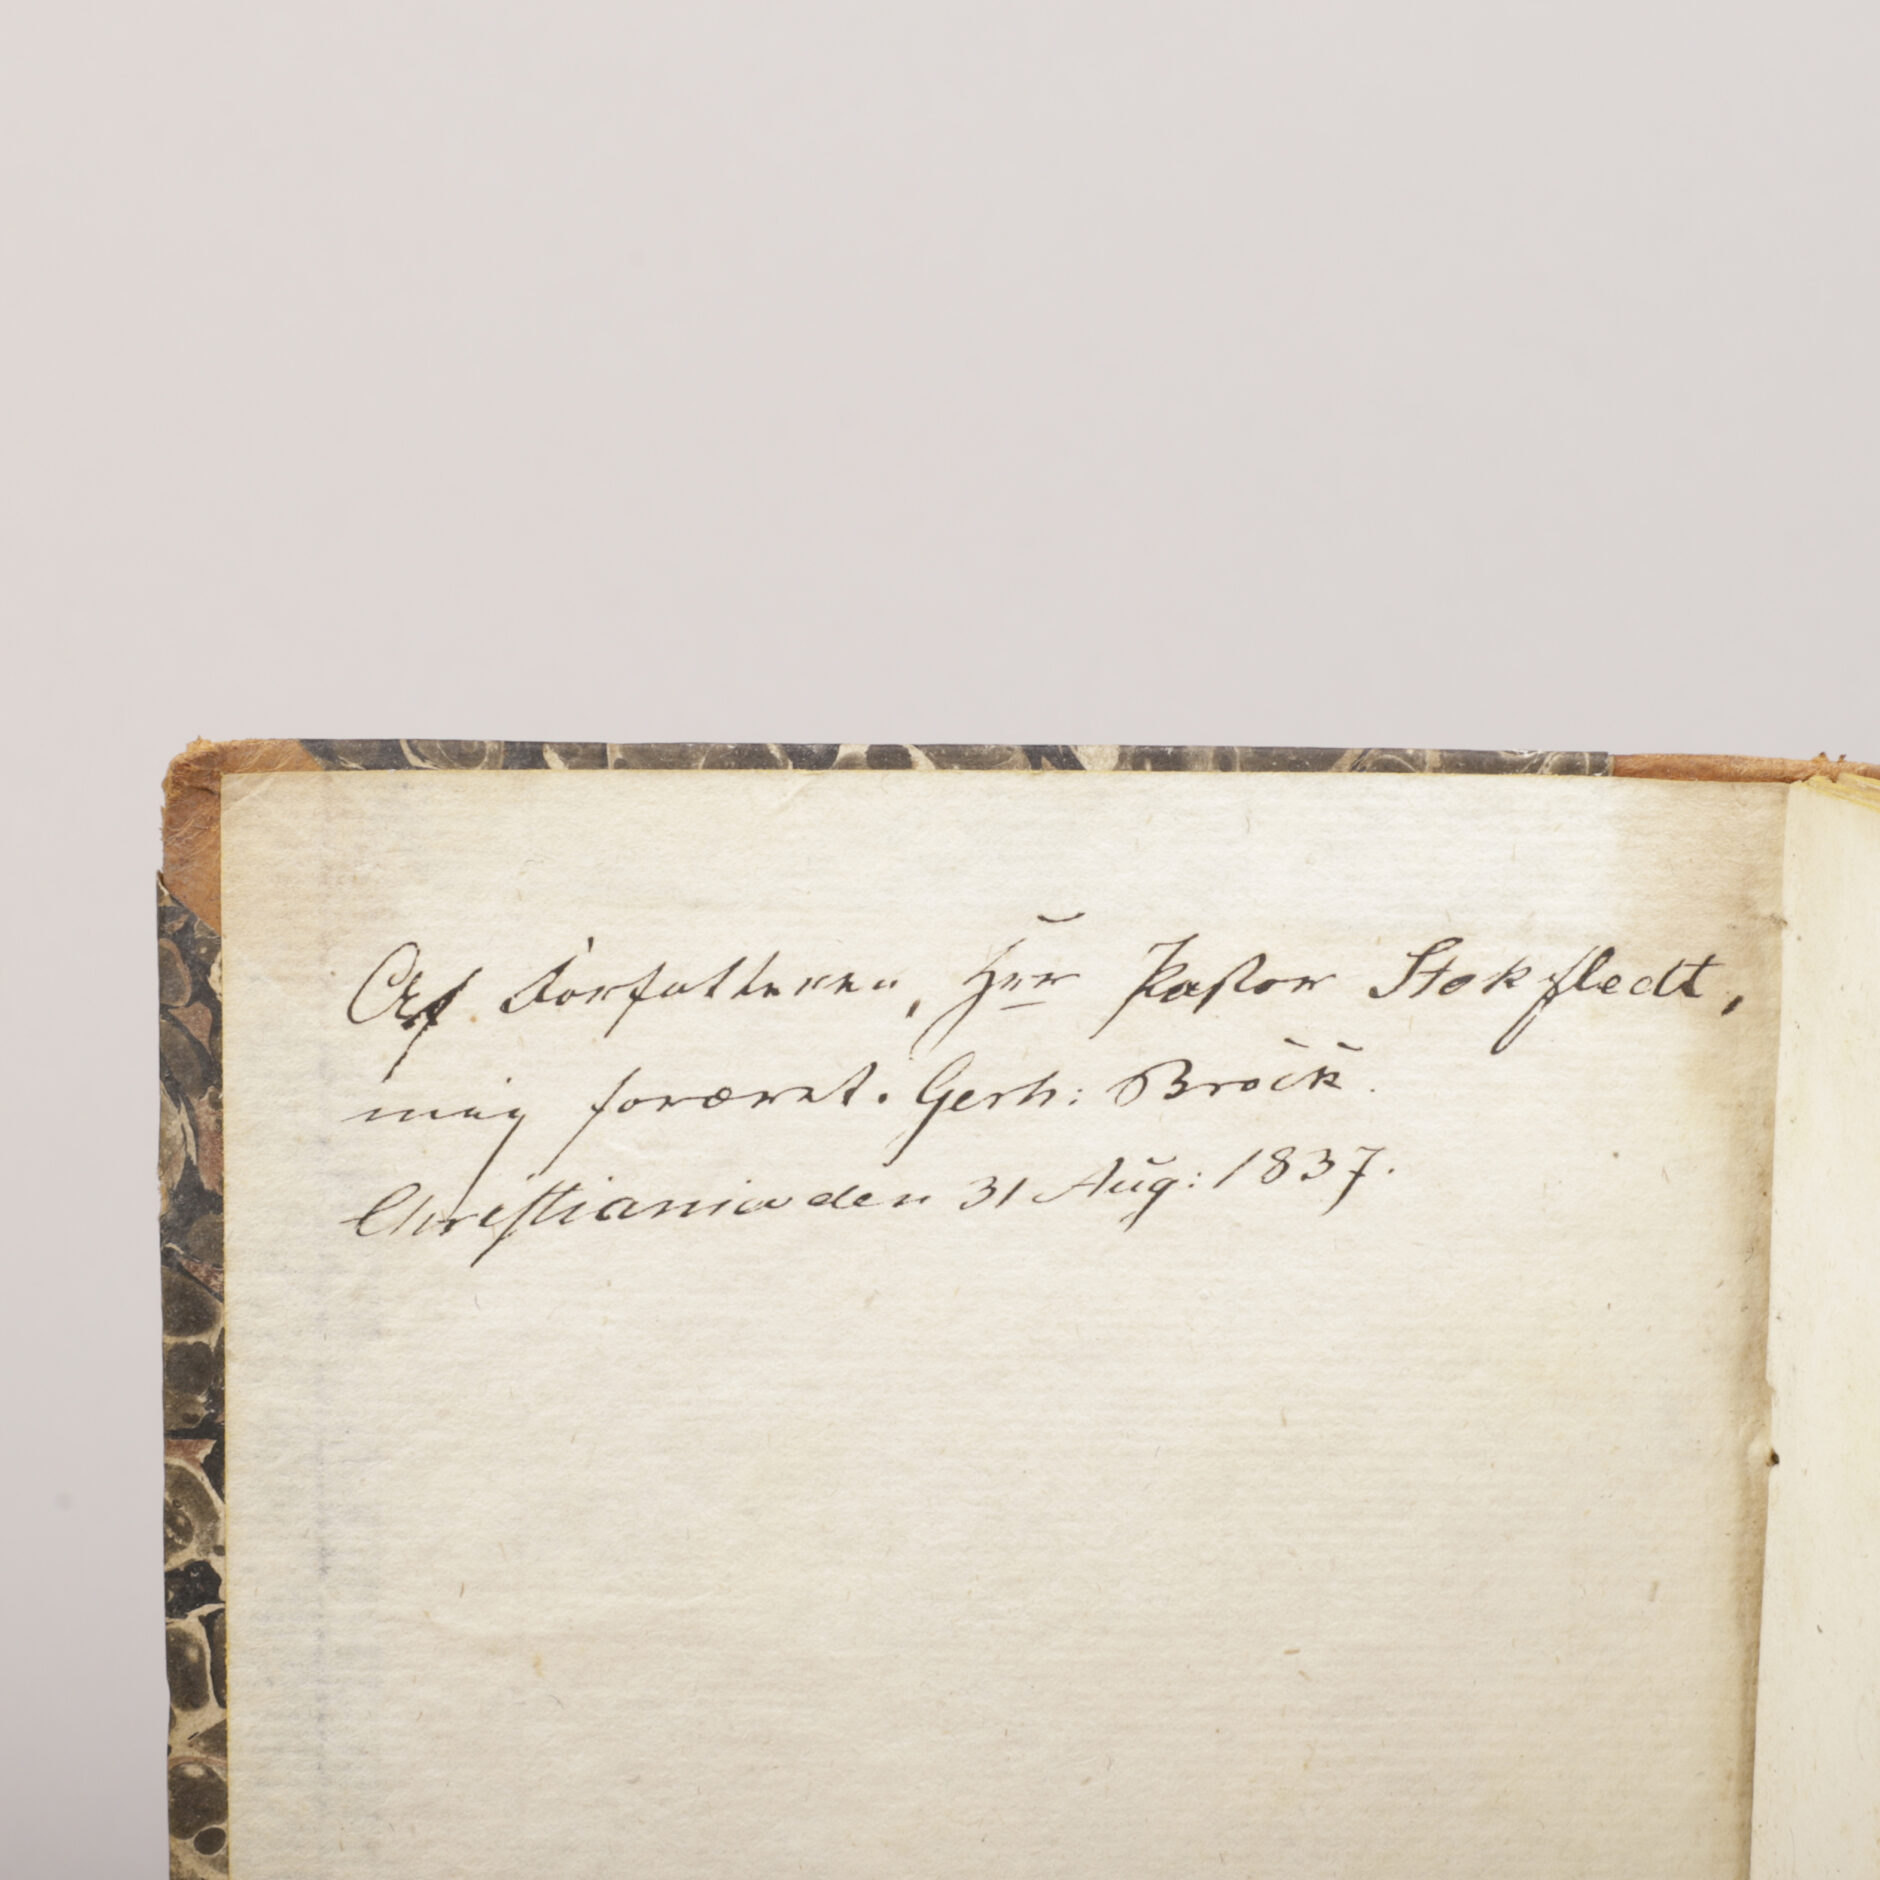 Af Forfatteren, Herr Pastor Stokfledt,
mig foræret. Gerh: Brock.
Christiania den 31 Aug: 1837.